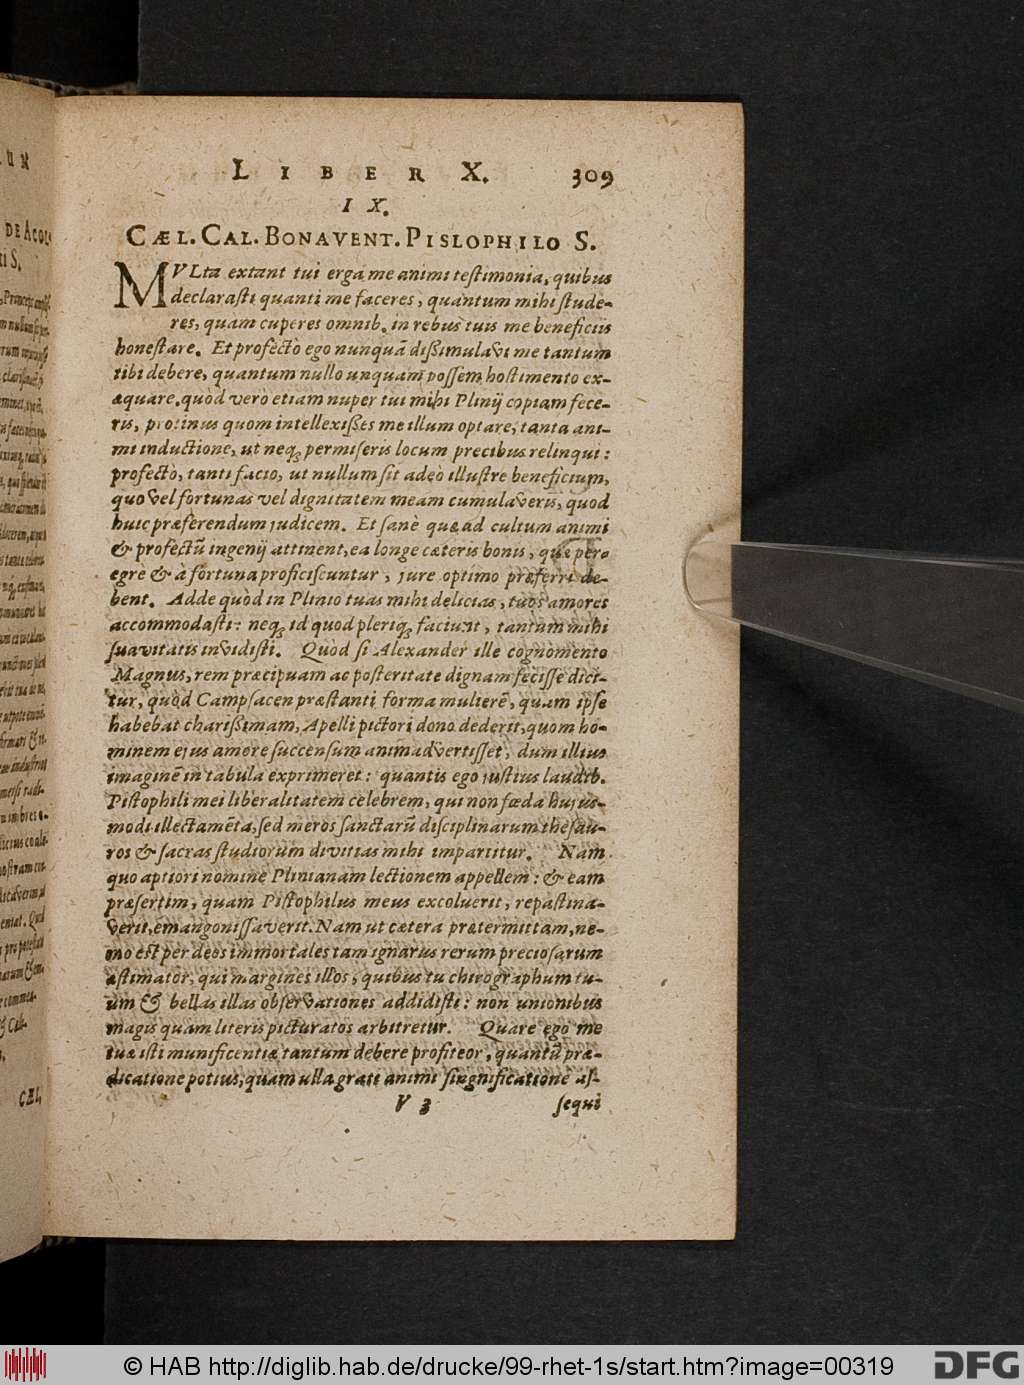 LIBER X. 309
IX.
CÆL. CAL. BONAVENT. PISLOPHILO S.
MVLta extant tui erga me animi testimonia, quibus
declarasti quanti me faceres, quantum mihi stude-
res, quam cuperes omnib. in rebus tuis me beneficiis
honestare. Et profectò ego nunquã dissimulavi me tantum
tibi debere, quantum nullo unquam possem hostimento ex-
æquare. quòd verò etiam nuper tui mihi Plinij copiam fece-
ris, protinus quom intellexisses me illum optare, tanta ani-
mi inductione, ut neq; permiseris locum precibus relinqui:
profectò, tanti facio, ut nullum sit adeò illustre beneficium,
quo vel fortunas vel dignitatem meam cumulaveris, quod
huic præferendum judicem. Et sanè quæ ad cultum animi
& profectũ ingenij attinent, ea longe cæteris bonis, quæ per-
egrè & à fortuna proficiscuntur, jure optimo præferri de-
bent. Adde quòd in Plinio tuas mihi delicias, tuos amores
accommodasti: neq; id quod pleriq; faciunt, tantum mihi
suavitatis invidisti. Quòd si Alexander ille cognomento
Magnus, rem præcipuam ac posteritate dignam fecisse dici-
tur, quòd Campsacen præstanti forma mulierẽ, quam ipse
habebat charissimam, Apelli pictori dono dederit, quom ho-
minem ejus amore succensum animadvertisset, dum illius
imaginẽ in tabula exprimeret: quantis ego justius laudib.
Pistophili mei liberalitatem celebrem, qui non fœda hujus-
modi illectamẽta, sed meros sanctarũ disciplinarum thesau-
ros & sacras studiorum divitias mihi impartitur. Nam
quo aptiori nomine Plinianam lectionem appellem: & eam
præsertim, quam Pistophilus meus excoluerit, repastina-
verit, emangonissaverit. Nam ut cætera prætermittam, ne-
mo est per deos immortales tam ignarus rerum preciosarum
æstimator, qui margines illos, quibus tu chirographum tu-
um & bellas illas observationes addidisti: non unionibus
magis quam literis picturatos arbitretur. Quare ego me
tuæ isti munificentiæ tantum debere profiteor, quantũ præ-
dicatione potius, quam ulla grati animi singnificatione as-
V 3 sequi
DE ACOL-
ti S.
CÆL.
© HAB http://diglib.hab.de/drucke/99-rhet-1s/start.htm?image=00319
DFG